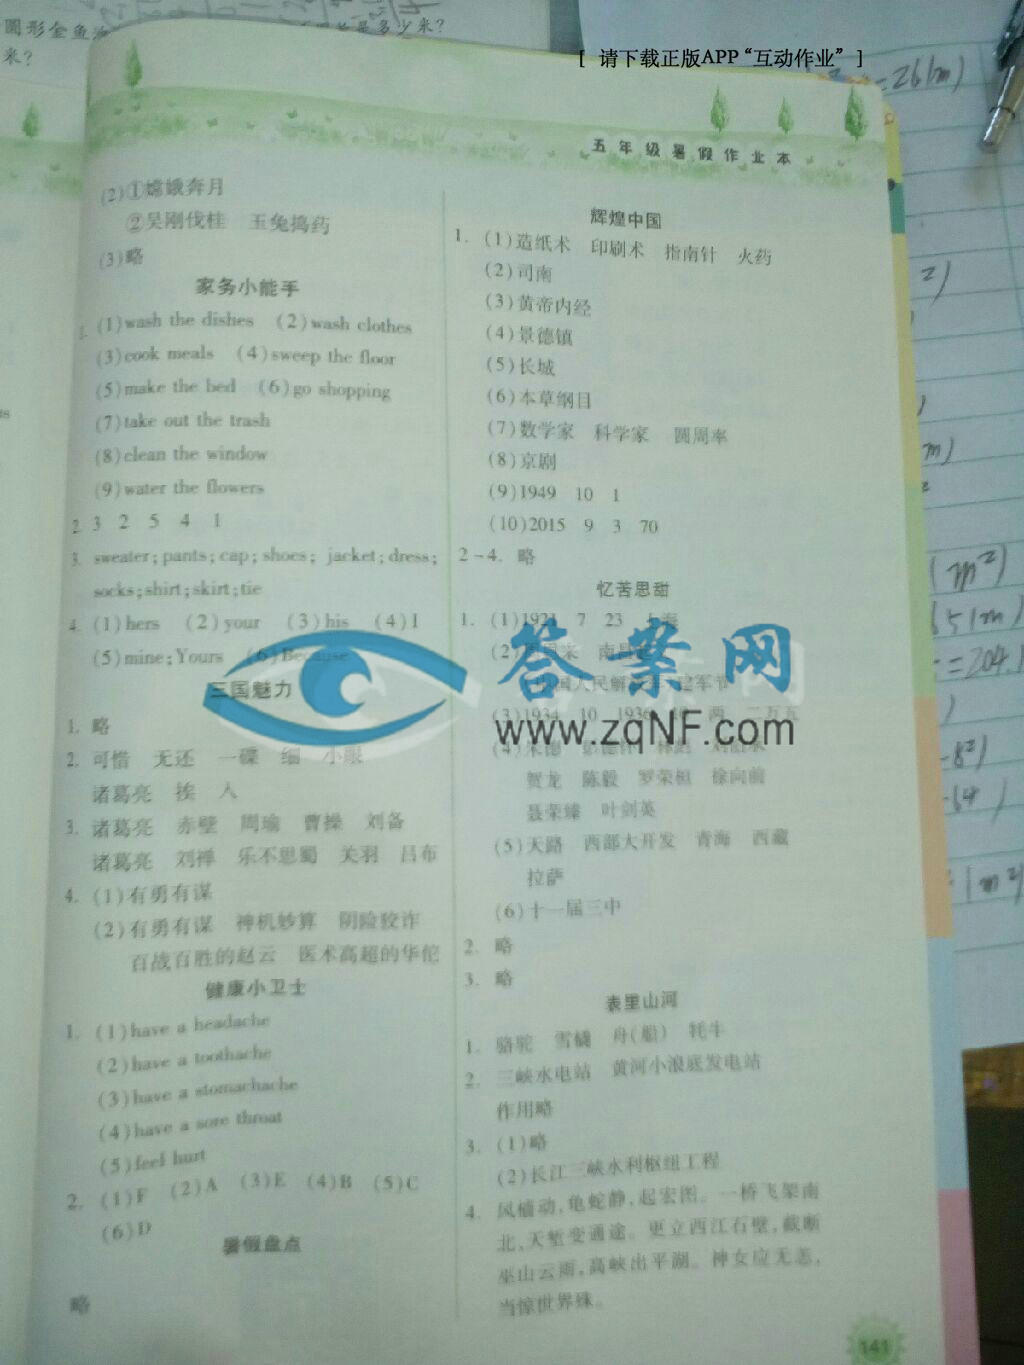 圆形金鱼池
是多少米？
米？
[ 请下载正版APP“互动作业” ]
=261m)
五年级暑假作业本
(2)①嫦娥奔月
②吴刚伐桂 玉兔捣药
(3)略
家务小能手
1. (1)wash the dishes (2)wash clothes
(3)cook meals (4)sweep the floor
(5)make the bed (6)go shopping
(7)take out the trash
(8)clean the window
(9)water the flowers
2. 3 2 5 4 1
3. sweater;pants;cap;shoes; jacket;dress;
socks;shirt;skirt;tie
4. (1)hers (2)your (3)his (4)I
(5)mine;Yours (6)Because
三国魅力
1. 略
2. 可惜 无还 一碟 细 小眼
诸葛亮 挨 人
3. 诸葛亮 赤壁 周瑜 曹操 刘备
诸葛亮 刘禅 乐不思蜀 关羽 吕布
4. (1)有勇有谋
(2)有勇有谋 神机妙算 阴险狡诈
百战百胜的赵云 医术高超的华佗
健康小卫士
1. (1)have a headache
(2)have a toothache
(3)have a stomachache
(4)have a sore throat
(5)feel hurt
2. (1)F (2)A (3)E (4)B (5)C
(6)D
暑假盘点
略
辉煌中国
1. (1)造纸术 印刷术 指南针 火药
(2)司南
(3)黄帝内经
(4)景德镇
(5)长城
(6)本草纲目
(7)数学家 科学家 圆周率
(8)京剧
(9)1949 10 1
(10)2015 9 3 70
2-4. 略
忆苦思甜
1. (1)1921 7 23 上海
(2)周恩来 南昌
中国人民解放军 建军节
(3)1934 10 1936 10 两 二万五
(4)朱德 彭德怀 林彪 刘伯承
贺龙 陈毅 罗荣桓 徐向前
聂荣臻 叶剑英
(5)天路 西部大开发 青海 西藏
拉萨
(6)十一届三中
2. 略
3. 略
表里山河
1. 骆驼 雪橇 舟(船) 牦牛
2. 三峡水电站 黄河小浪底发电站
作用略
3. (1)略
(2)长江三峡水利枢纽工程
4. 风樯动,龟蛇静,起宏图。一桥飞架南
北,天堑变通途。更立西江石壁,截断
巫山云雨,高峡出平湖。神女应无恙,
当惊世界殊。
141
答案网
www.zqNF.com